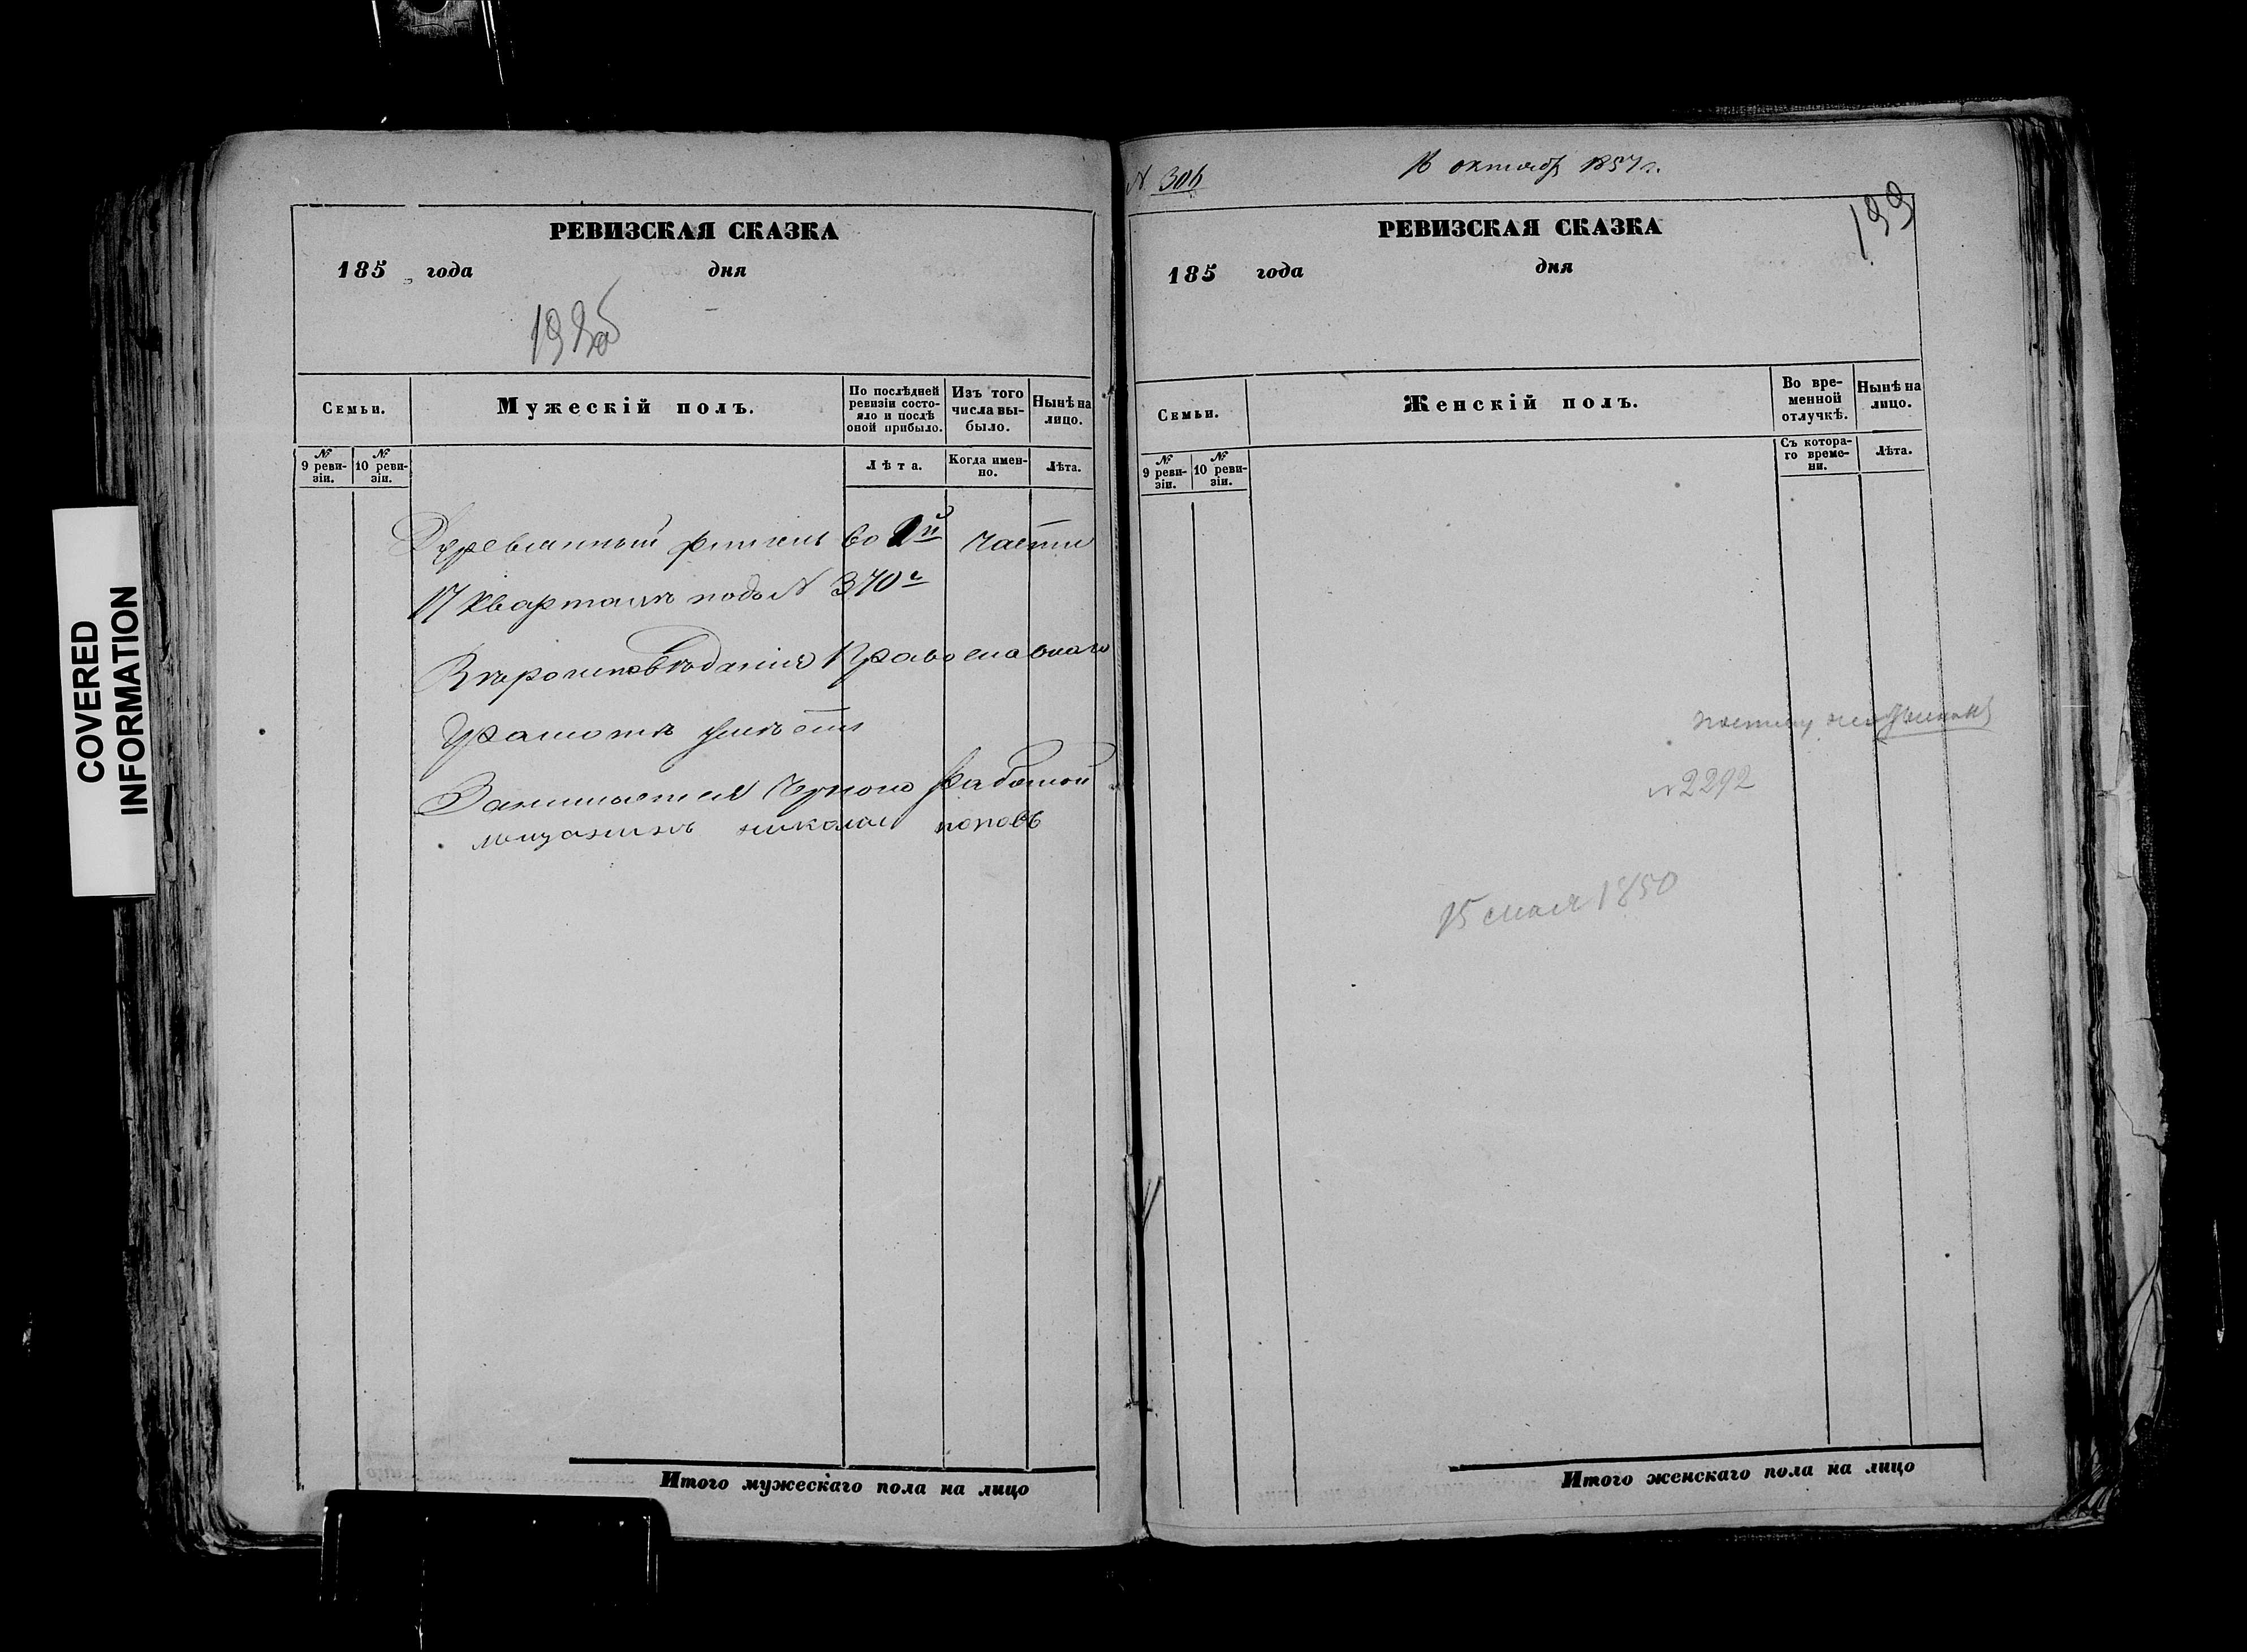 РЕВИЗСКАЯ СКАЗКА
185 года дня
Семьи.
Мужескій полъ.
По послѣдней ревизіи состояло и послѣ оной прибыло.
Изъ того числа выбыло.
Нынѣ на лицо.
№ 9 ревизіи.
№ 10 ревизіи.
Лѣта.
Когда именно.
Лѣта.
Деревянный во й части
17 Кварталѣ подъ № 370г
Вѣроисповѣданія Православнаго
Грамотѣ умѣетъ
Занимается Черною работой
мещанинъ николаи поповъ
Итого мужескаго пола на лицо
№ 306
16 октябр 1857 г.
199
РЕВИЗСКАЯ СКАЗКА
185 года дня
Семьи.
Женскій полъ.
Во временной отлучкѣ.
Нынѣ на лицо.
№ 9 ревизіи.
№ 10 ревизіи.
Съ котораго времени.
Лѣта.
№ 2292
15 мая 1850
Итого женскаго пола на лицо
COVERED
INFORMATION